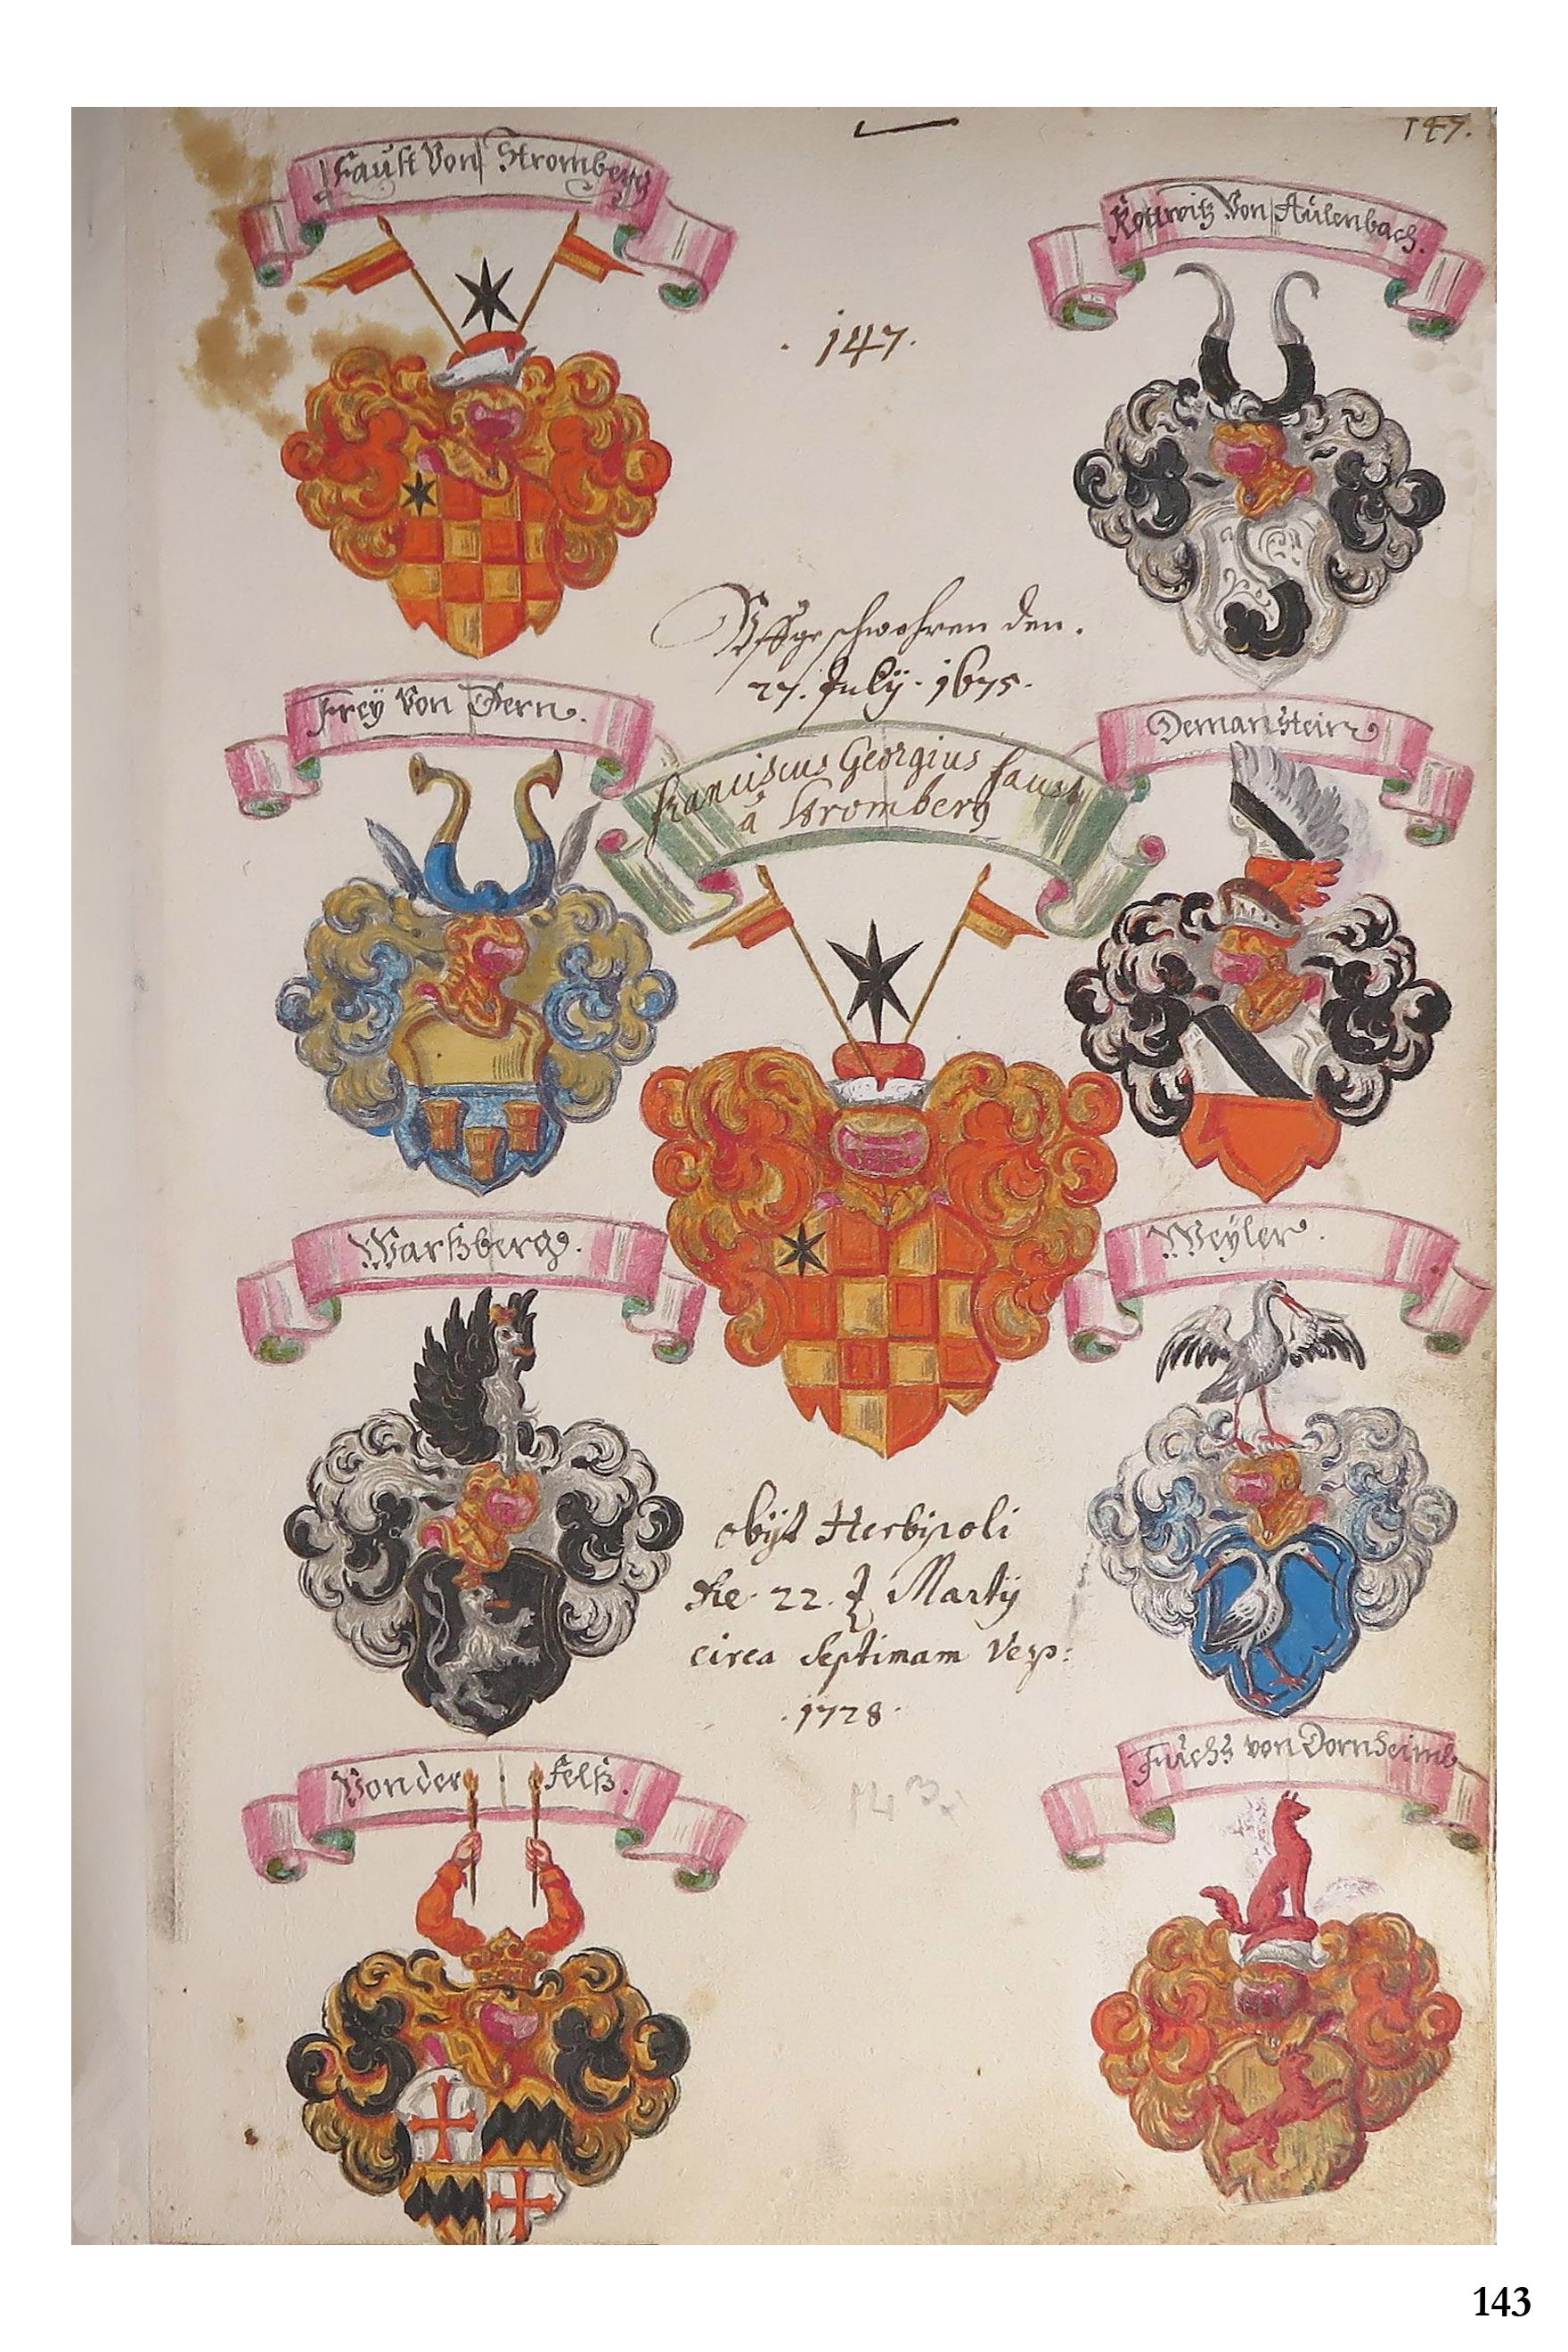 147.
Faust Von Stromberg
Kottwitz Von Aulenbach.
. 147.
Uffgeschwohren den.
27. July. 1675.
Frey Von Dern.
Franciscus Georgius Faust
â Stromberg
Demanstein
Wartzberg.
Weyler.
obijt Herbipoli
22. Martij
circa Septimam Vesp:
. 1728.
Vonder Feltz.
Fuchs von Dornheimb
143